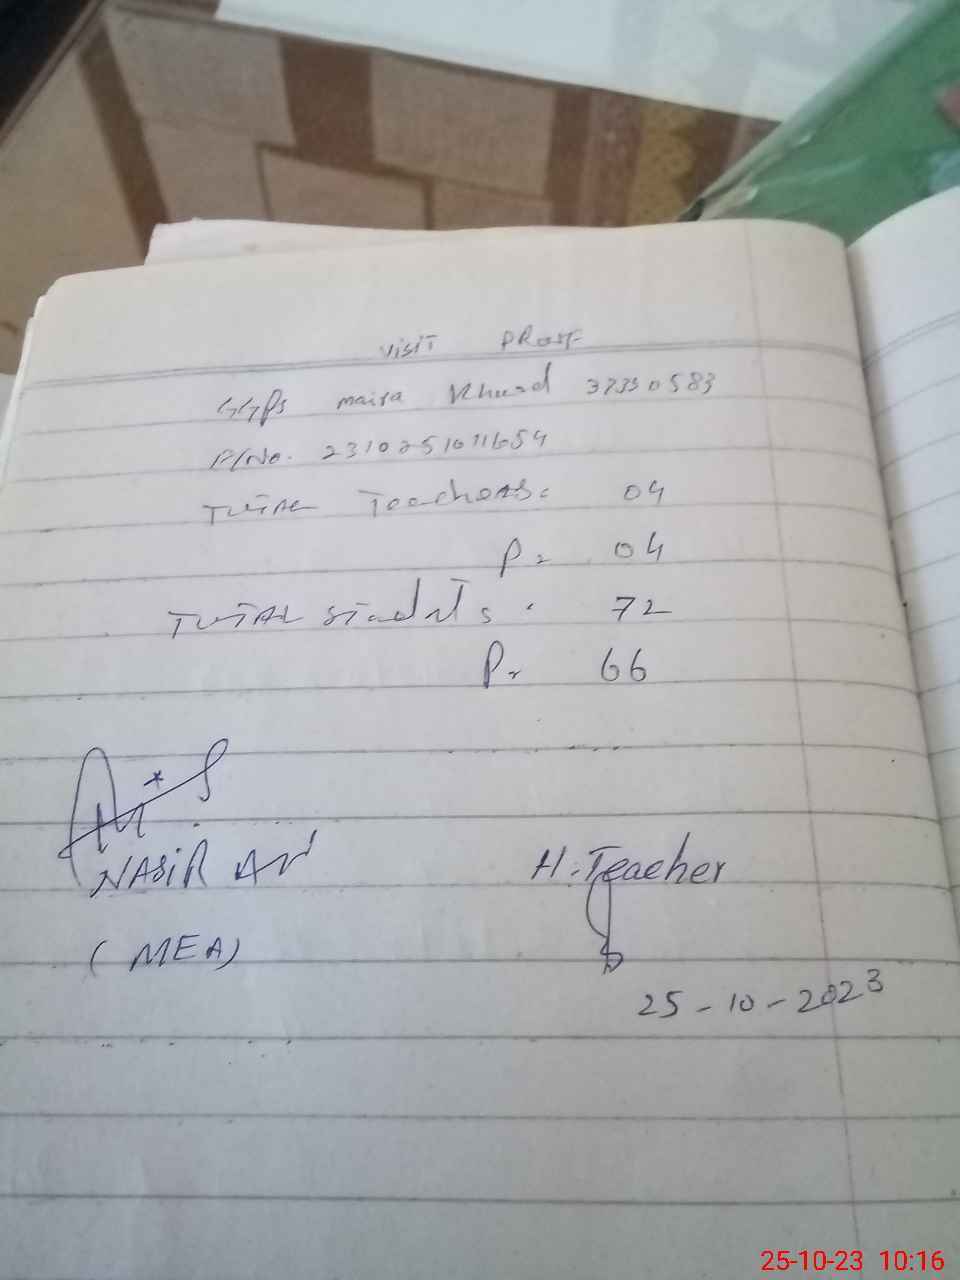 VISIT PROOF
GGPS maira Khurd 37330583
P/No. 2310251011654
TOTAL Teachers: 04
P= 04
TOTAL Students: 72
P= 66
NASIR
(MEA)
H.Teacher
25-10-2023
25-10-23 10:16